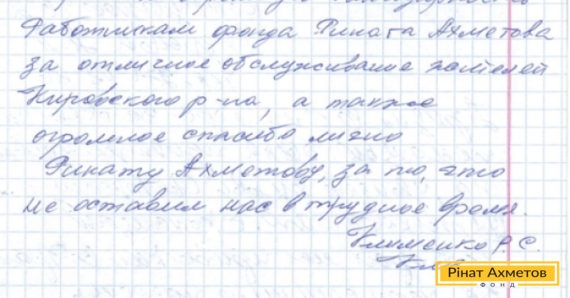 работникам фонда Рината Ахметова
за отличное обслуживание жителей
Кировского р-на, а также
огромное спасибо лично
Ринату Ахметову, за то, что
не оставил нас в трудное время.
Клименко Р. С.
Рінат Ахметов
ФОНД